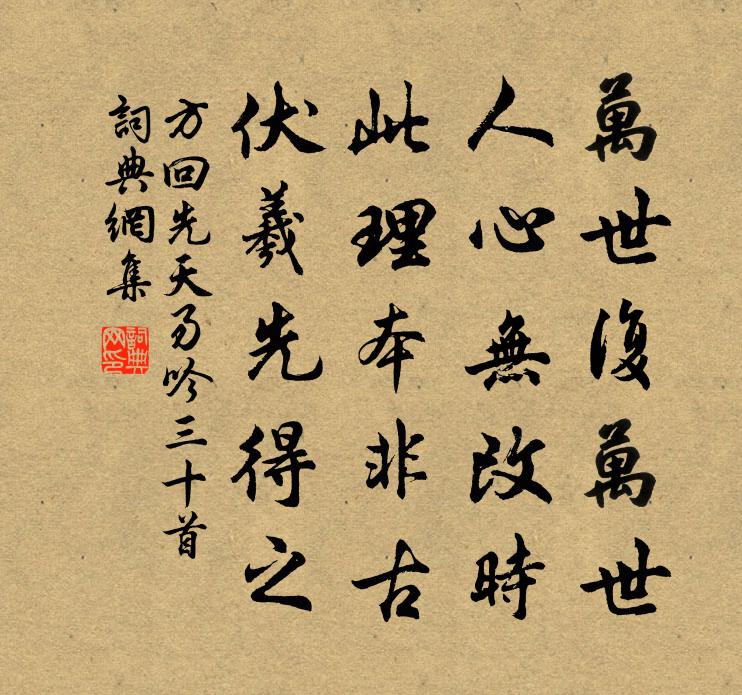 萬世復萬世
人心無改時
此理本非古
伏羲先得之
方回先天易吟三十首
詞典網集
詞典網印